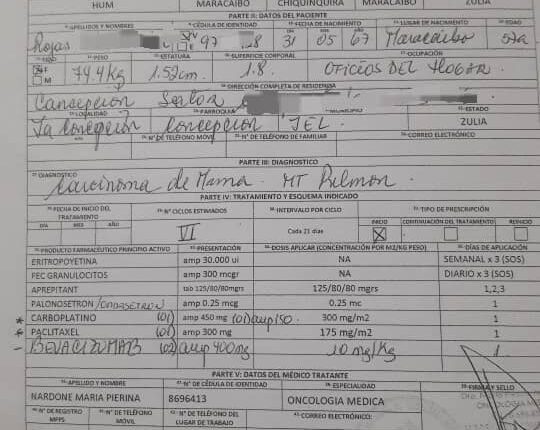 HUM MARACAIBO CHIQUINQUIRA MARACAIBO ZULIA
PARTE II: DATOS DEL PACIENTE
APELLIDOS Y NOMBRES CÉDULA DE IDENTIDAD FECHA DE NACIMIENTO LUGAR DE NACIMIENTO EDAD
Rojas 97 8 31 05 67 Maracaibo 57a
SEXO PESO ESTATURA SUPERFICIE CORPORAL OCUPACIÓN
F M 74.4Kg 1.52cm 1.8 OFICIOS DEL HOGAR
DIRECCIÓN COMPLETA DE RESIDENCIA
Concepcion Sector
LOCALIDAD PARROQUIA MUNICIPIO ESTADO
La Concepción Concepcion JEL. ZULIA
N° DE TELÉFONO MÓVIL N° DE TELÉFONO DE FAMILIAR CORREO ELECTRÓNICO
PARTE III: DIAGNOSTICO
DIAGNOSTICO
Carcinoma de Mama. MT Pulmon.
PARTE IV: TRATAMIENTO Y ESQUEMA INDICADO
FECHA DE INICIO DEL TRATAMIENTO N° CICLOS ESTIMADOS INTERVALO POR CICLO TIPO DE PRESCRIPCIÓN
DÍA MES AÑO VI Cada 21 días INICIO CONTINUACIÓN DEL TRATAMIENTO REINICIO
PRODUCTO FARMACÉUTICO PRINCIPIO ACTIVO PRESENTACIÓN DOSIS APLICAR (CONCENTRACIÓN POR M2/KG PESO) DÍAS DE APLICACIÓN
ERITROPOYETINA amp 30.000 ui NA SEMANAL x 3 (SOS)
FEC GRANULOCITOS amp 300 mcgr NA DIARIO x 3 (SOS)
APREPITANT tab 125/80/80mgrs 125/80/80 mgrs 1,2,3
PALONOSETRON /ONDASETRON amp 0.25 mcg 0.25 mc 1
* CARBOPLATINO (01) amp 450 mg (01) amp 150. 300 mg/m2 1
* PACLITAXEL (01) amp 300 mg 175 mg/m2 1
- BEVACIZUMAB (02) amp 400mg 10 mg/Kg 1
PARTE V: DATOS DEL MÉDICO TRATANTE
APELLIDO Y NOMBRE N° DE CÉDULA DE IDENTIDAD ESPECIALIDAD FIRMA Y SELLO
NARDONE MARIA PIERINA 8696413 ONCOLOGIA MEDICA
N° DE REGISTRO MPPS N° DE TELÉFONO MÓVIL N° DE TELÉFONO DEL LUGAR DE TRABAJO CORREO ELECTRÓNICO: